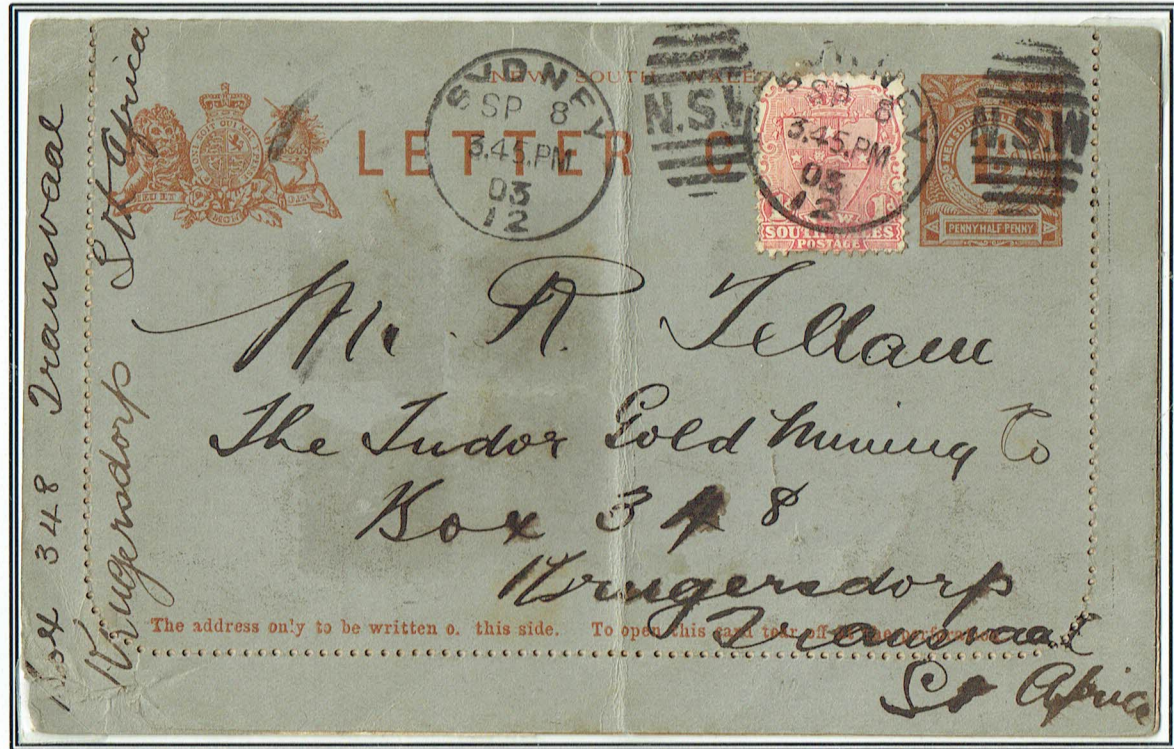 NEW SOUTH WALES
LETTER C
SYDNEY
SP 8
3.45.PM
03
12
N.S.W
SP 8
3.45.PM
03
12
N.S.W
1d
SOUTH WALES
POSTAGE
PENNY HALF-PENNY
Mr. R. Tellam
The Tudor Gold Mining Co
Box 348
Krugersdorp
Transvaal
St Africa
The address only to be written o. this side. To open this card tear off
Box 348 Transvaal
Krugersdorp St Africa